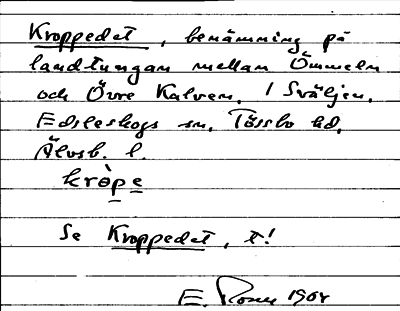 Kroppedet, benämning på
landtungan mellan Ömmeln
och Övre Kalven. / Sväljen,
Edsleskogs sn, Tössbo hd,
Älvsb. l.
kròpe
Se Kroppedet, t!
E. 1964